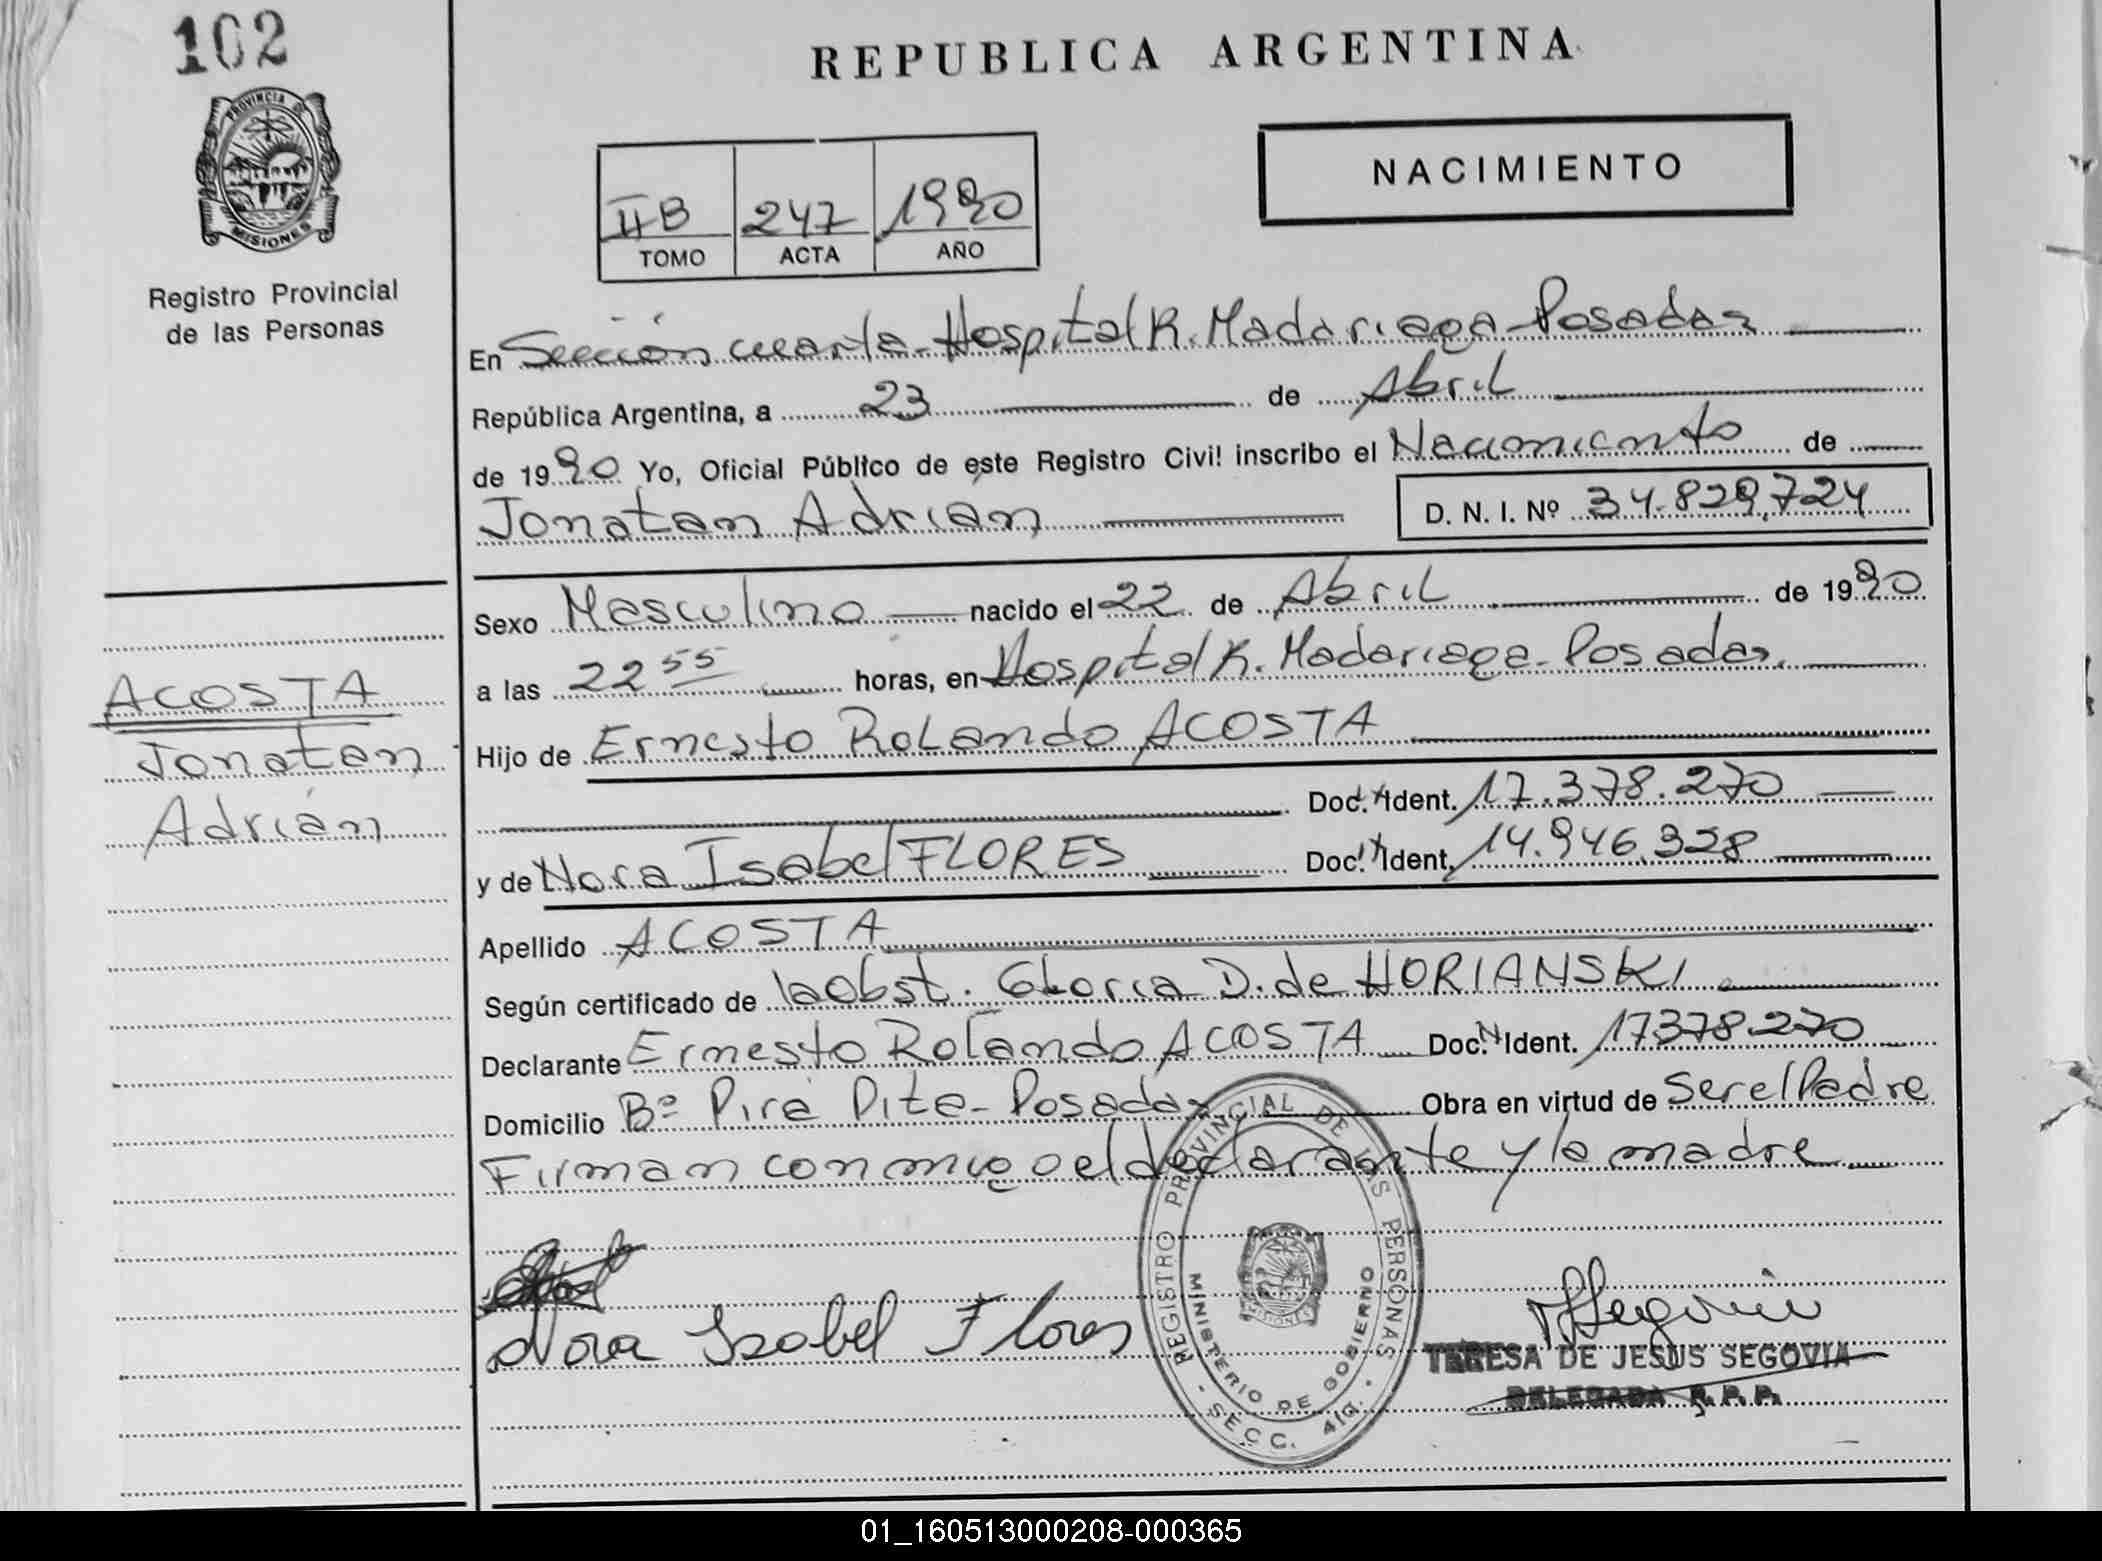 102
PROVINCIA DE
MISIONES
Registro Provincial
de las Personas
REPUBLICA ARGENTINA
NACIMIENTO
IIB 247 1990
TOMO ACTA AÑO
En Sección cuarta - Hospital R. Madariaga - Posadas
República Argentina, a 23 de Abril
de 1990 Yo, Oficial Público de este Registro Civil inscribo el Nacimiento de
Jonatan Adrián D. N. I. Nº 34.829.724
Sexo Masculino nacido el 22 de Abril de 1990
a las 22 55 horas, en Hospital R. Madariaga - Posadas.
Hijo de Ernesto Rolando ACOSTA
Doc. Ident. 17.378.270
y de Nora Isabel FLORES Doc. Ident. 14.946.328
Apellido ACOSTA
Según certificado de la Obst. Gloria D. de HORIANSKI
Declarante Ernesto Rolando ACOSTA Doc. N Ident. 17378270
Domicilio Bº Pirá Pitá - Posadas Obra en virtud de Ser el Padre
Firman conmigo el declarante y la madre
ACOSTA
Jonatan
Adrián
Nora Isabel Flores
REGISTRO PROVINCIAL DE LAS PERSONAS
MINISTERIO DE GOBIERNO
- SECC. 4ta. -
Segovia
TERESA DE JESUS SEGOVIA
DELEGADA R. P. P.
01_160513000208-000365